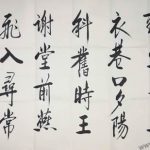 衣巷口夕陽
斜舊時王
謝堂前燕
飛入尋常